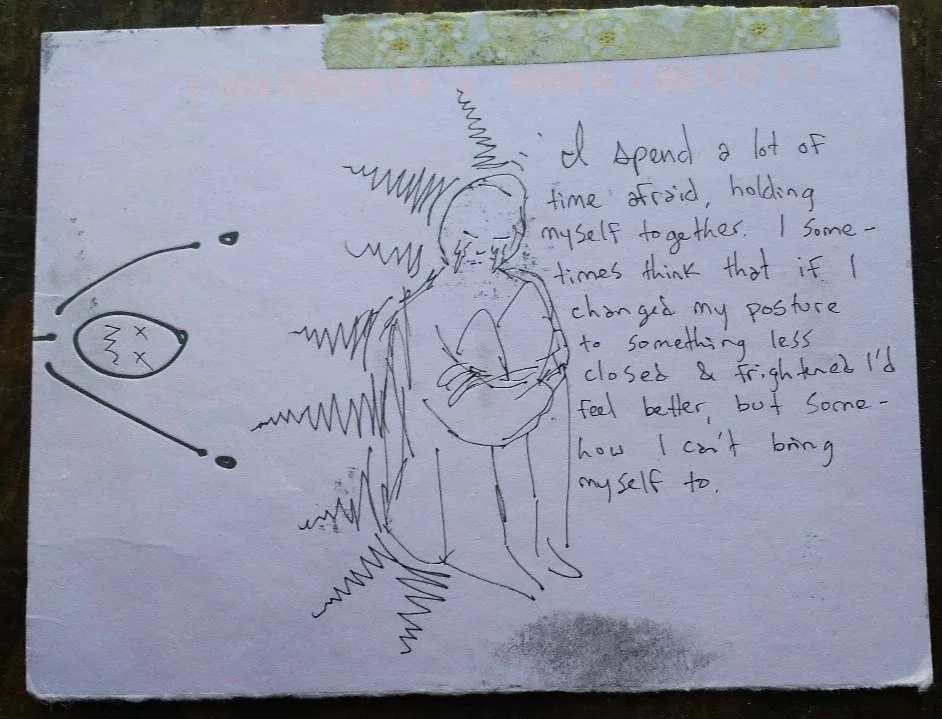 I spend a lot of
time afraid, holding
myself together. I some-
times think that if I
changed my posture
to something less
closed & frightened I'd
feel better, but some-
how I can't bring
myself to.